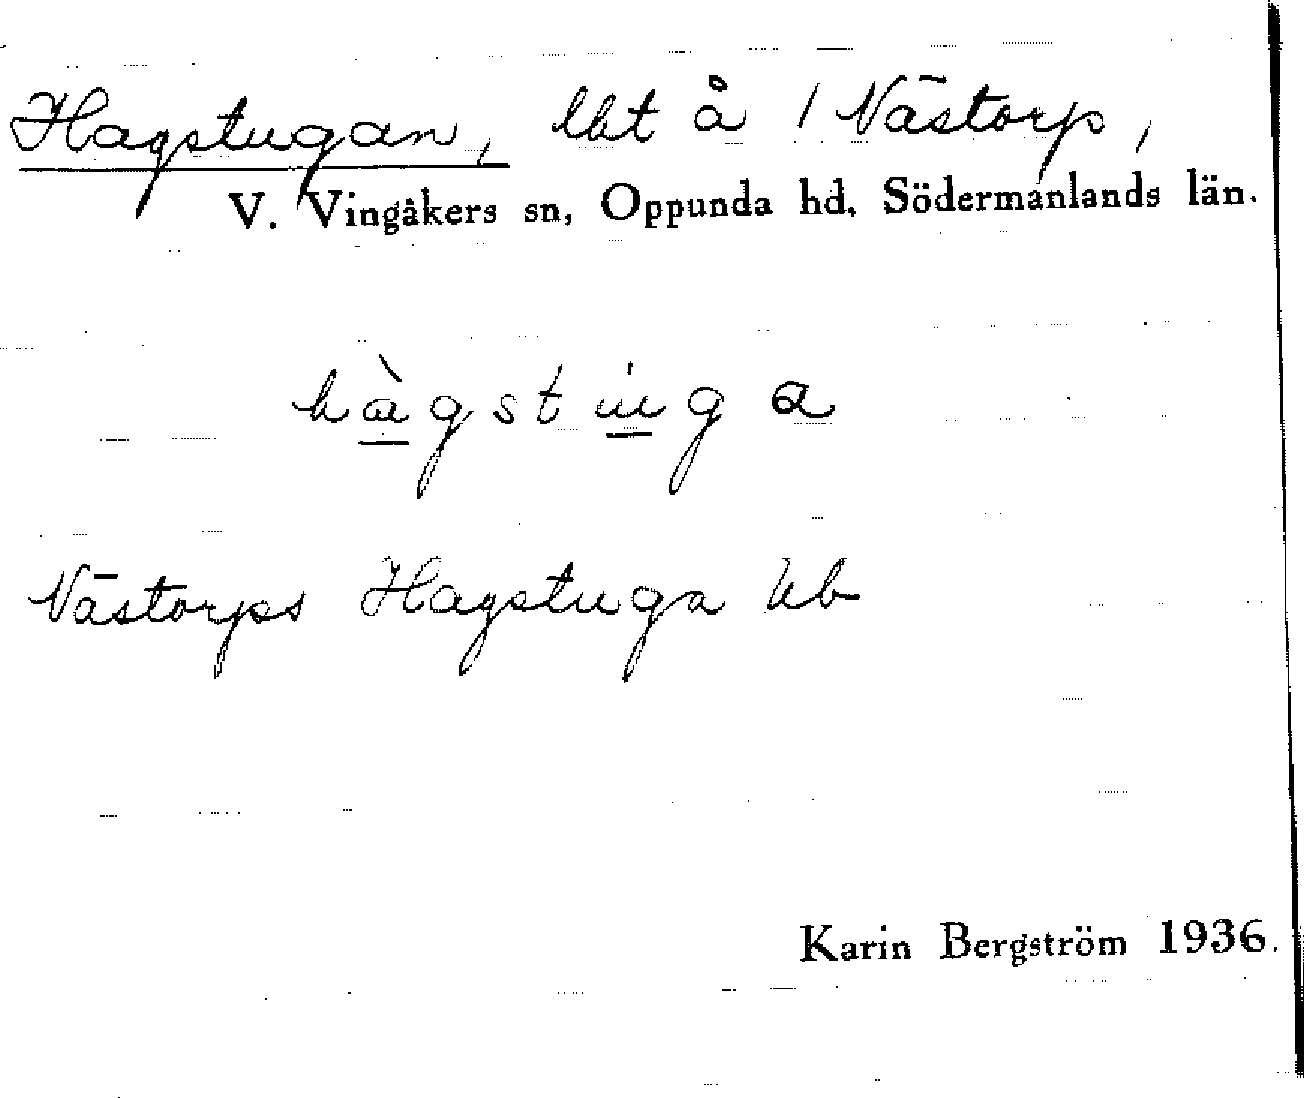 Hagstugan, lht å 1 Västorp,
V. Vingåkers sn, Oppunda hd, Södermanlands län.
hàgstuga
Västorps Hagstuga kb
Karin Bergström 1936.